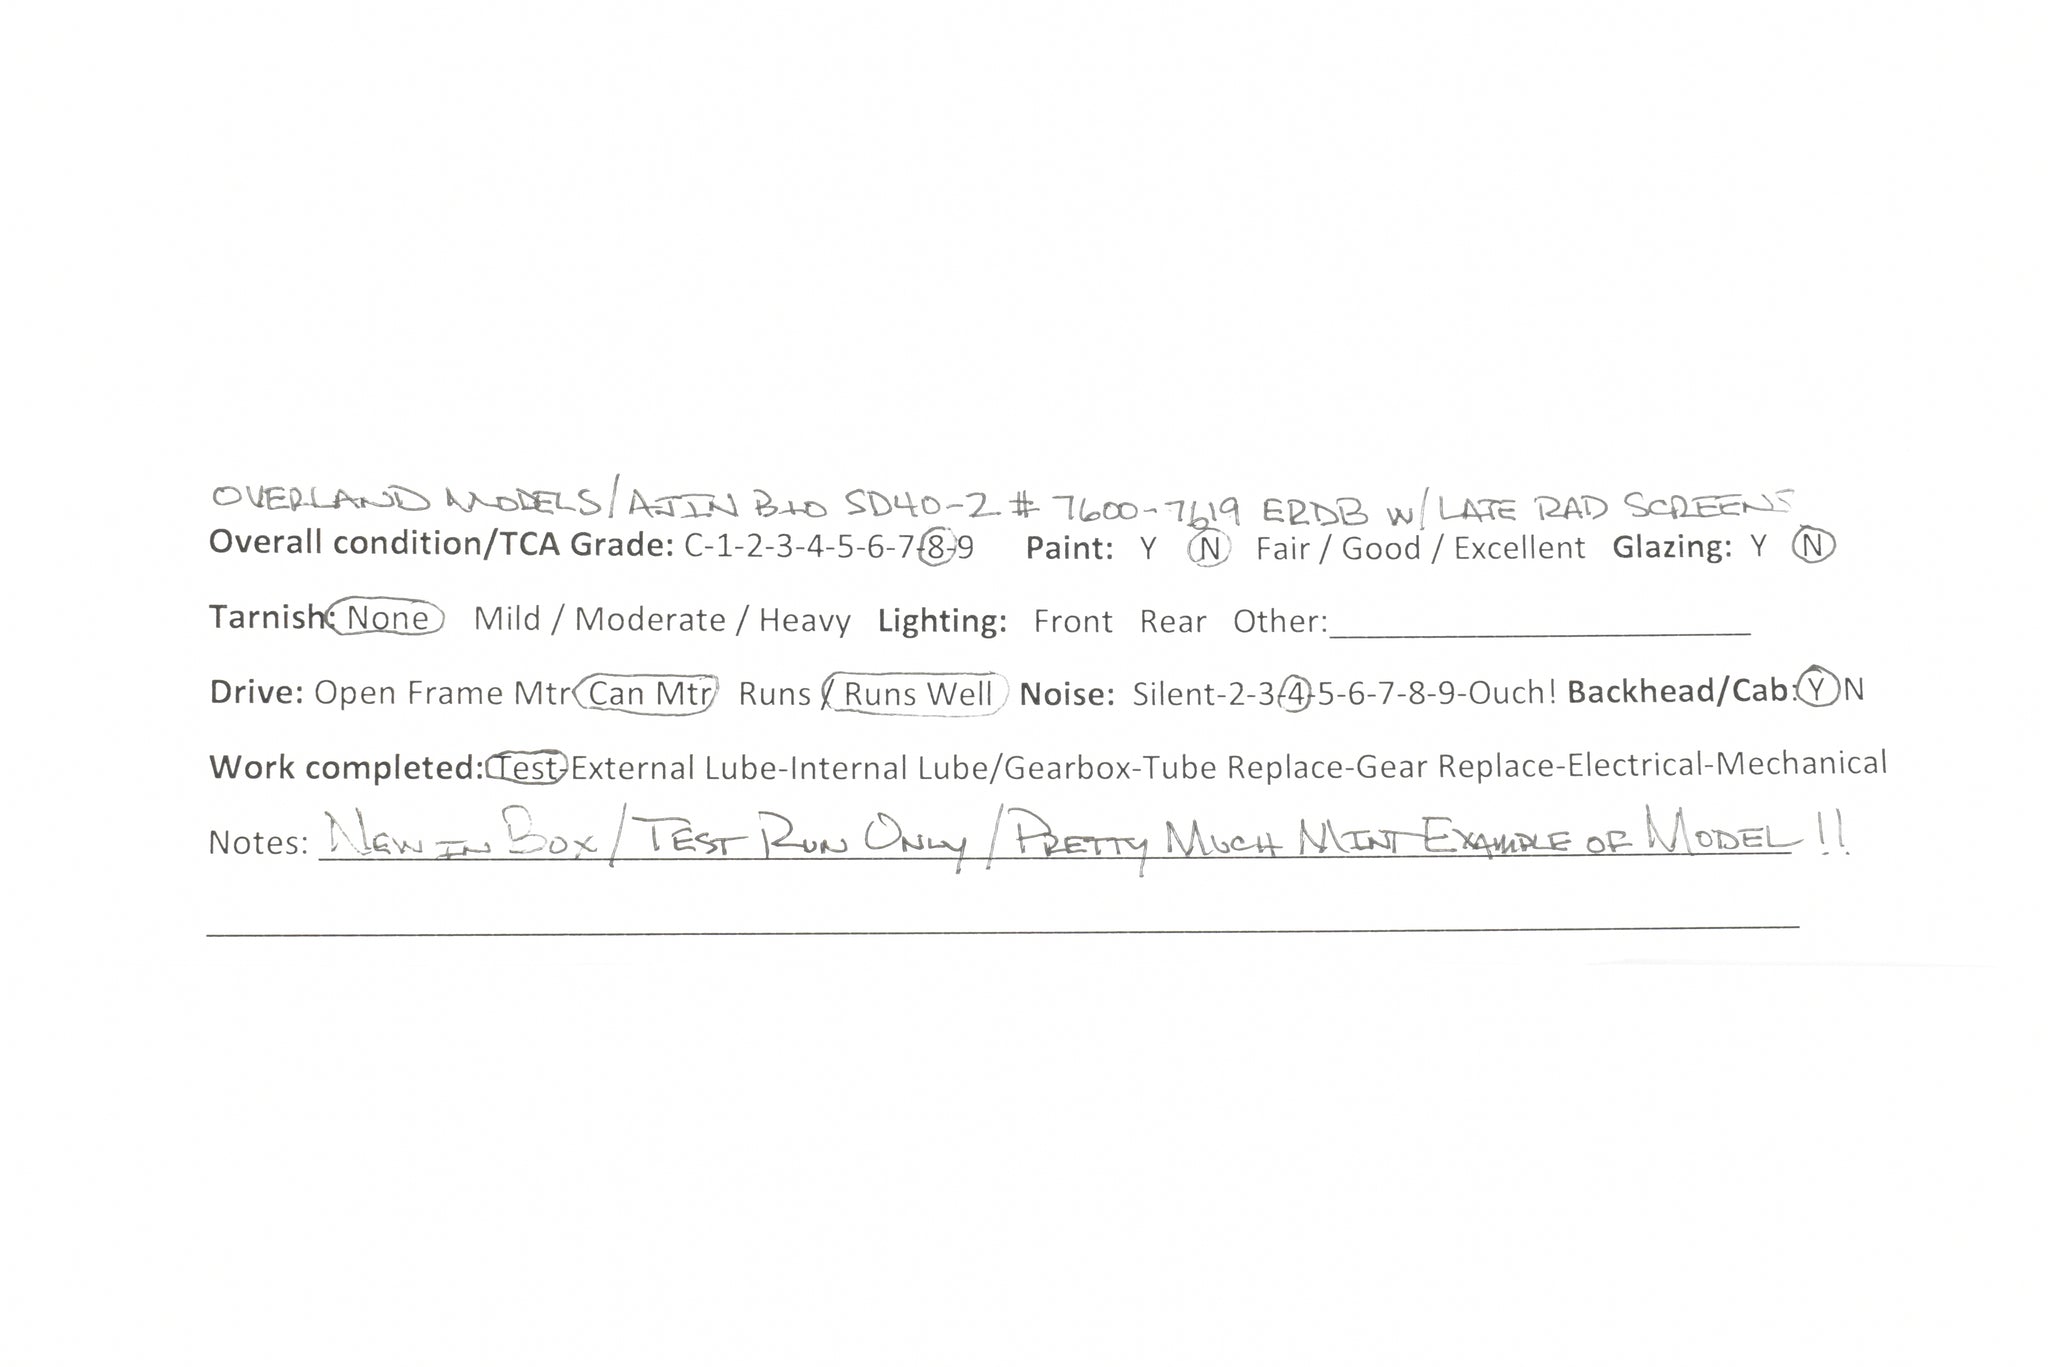 OVERLAND MODELS/AJIN B+O SD40-2 # 7600-7619 ERDB W/LATE RAD SCREENS
Overall condition/TCA Grade: C-1-2-3-4-5-6-7-8-9 Paint: Y N Fair / Good / Excellent Glazing: Y N
Tarnish: None Mild / Moderate / Heavy Lighting: Front Rear Other:
Drive: Open Frame Mtr Can Mtr Runs / Runs Well Noise: Silent-2-3-4-5-6-7-8-9-Ouch! Backhead/Cab: Y N
Work completed: Test-External Lube-Internal Lube/Gearbox-Tube Replace-Gear Replace-Electrical-Mechanical
Notes: NEW IN BOX/TEST RUN ONLY/PRETTY MUCH MINT EXAMPLE OF MODEL!!